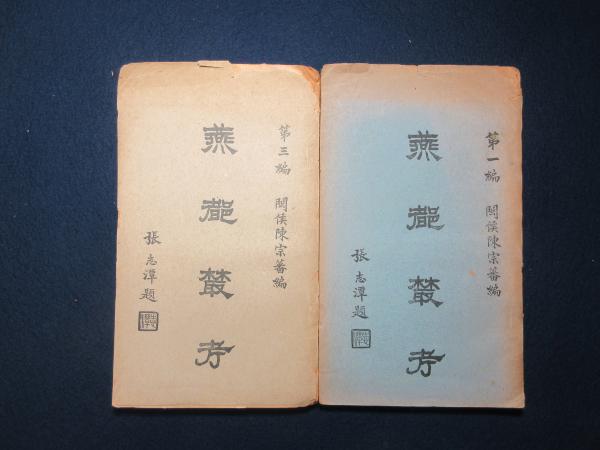 第一編 閩侯陳宗蕃編
燕都叢考
張志潭題
第三編 閩侯陳宗蕃編
燕都叢考
張志潭題